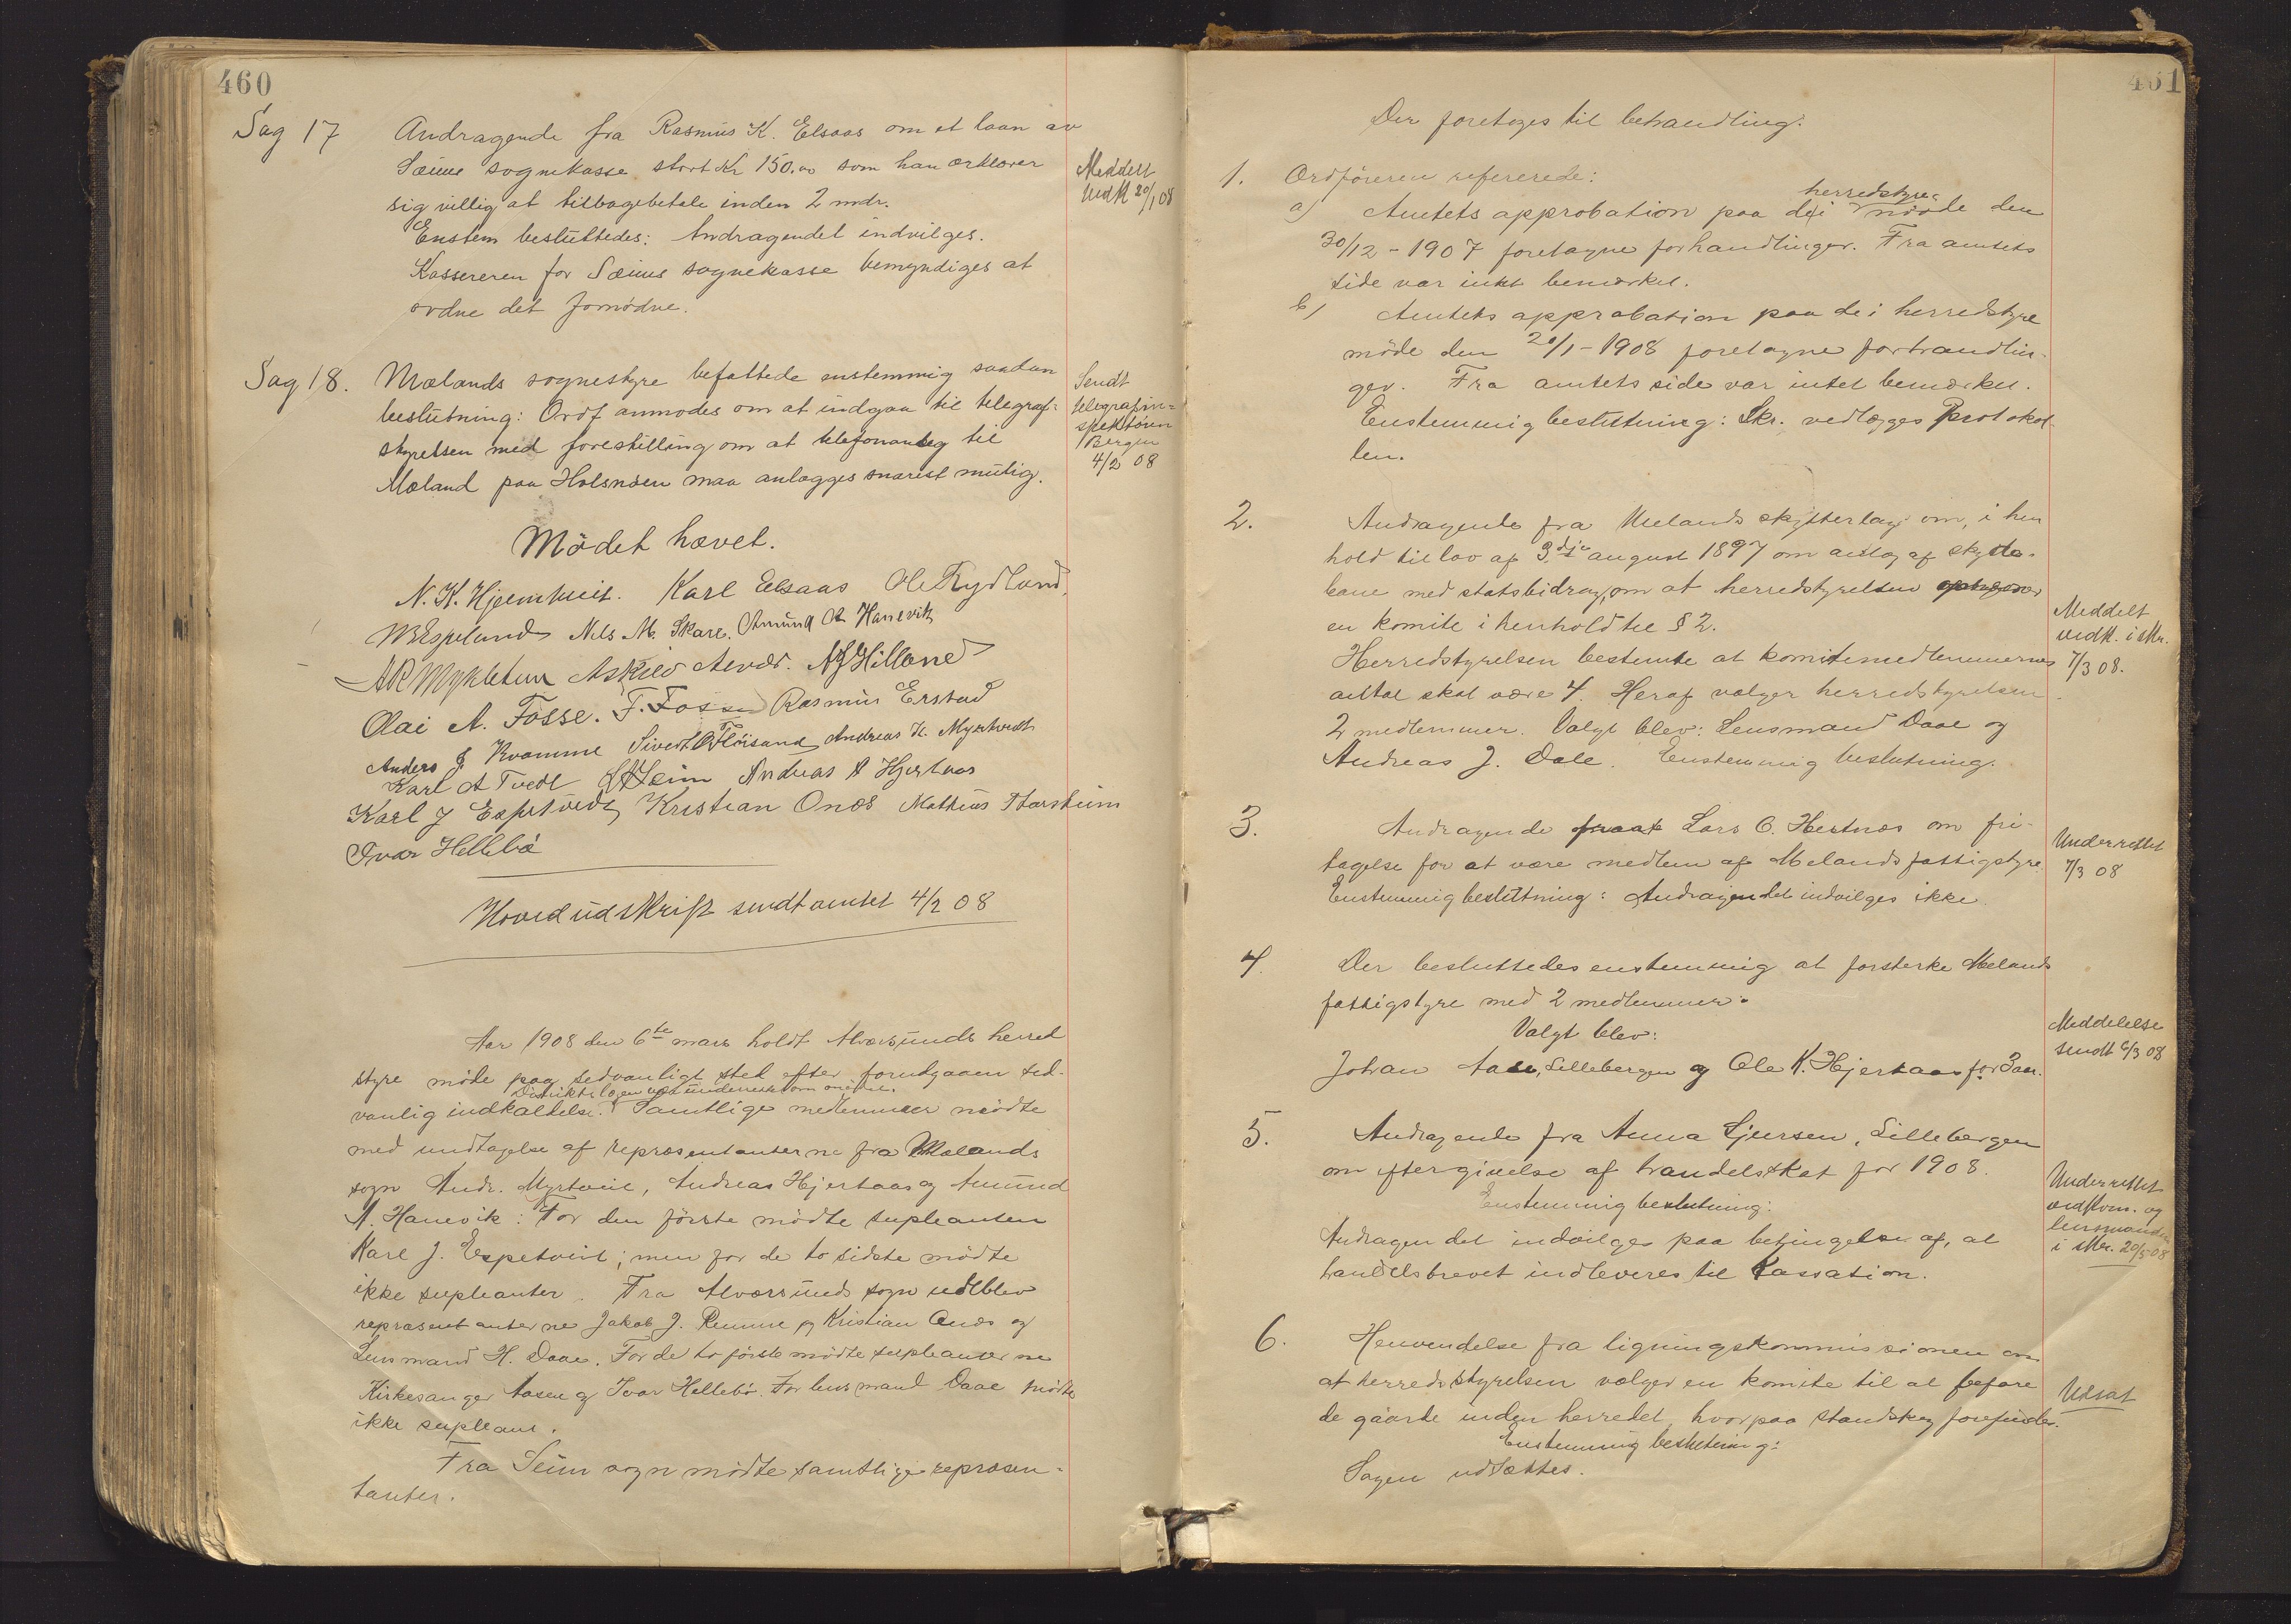 460
Sag 17 Andragende fra Rasmus K. Elsaas om et laan av
Sæims sognekasse stort Kr 150.00 som han ærklærer
sig villig at tilbagebetale inden 2 mdr.
Enstem besluttedes: Andragendet indvilges.
Kassereren for Sæims sognekasse bemyndiges at
ordne det fornødne.
Meddelt
vedk 20/1 08
Sag 18. Mælands sognestyre befattede enstemmig saadan
beslutning: Ordf anmodes om at indgaa til telegraf-
styrelsen med forestilling om at telefonanlæg til
Mæland paa Holsnøen maa anlægges snarest mulig.
Sendt
telegrafin-
spektøren
Bergen
4/2 08
Mødet hævet.
N. K. Hjelmtveit. Karl Elsaas Ole Rydland.
Espeland Nils M. Skare. Amund A. Hanevik
AR Mykletun Askild Alvær. Hilland
Olai A. Fosse. F. Fosse Rasmus Erstad
Anders J Kvamme Sivert Fløisand Andreas K. Myrtvedt
Karl A Tvedt Seim Andreas A Hjertaas
Karl J Espetvedt Kristian Onæs Mathias Thorsheim
Ivar Hellebø
Hovedudskrift sendt amtet 4/2 08
Aar 1908 den 6te mars holdt Alværsunds herred
styre møde paa sedvanligt sted efter forudgaaen sed-
Distriktslægen var underrettet om mødet.
vanlig indkaldelse. Samtlige medlemmer mødte
med undtagelse af repræsentanterne fra Mælands
sogn Andr. Myrtveit, Andreas Hjertaas og Amund
A. Hanevik: For den første mødte supleanten
Karl J. Espetveit; men for de to sidste mødte
ikke supleanter. Fra Alværsunds sogn udeblev
repræsentanterne Jakob J. Remme og Kristian Onæs og
Lensmand H. Daae. For de to første mødte supleanterne
Kirkesanger Aasen og Ivar Hellebø. For lensmand Daae mødte
ikke supleant.
Fra Seim sogn mødte samtlige repræsen-
tanter.
461
Der foretoges til behandling:
1. Ordføreren refererede:
a) Amtets approbation paa de i herredstyre møde den
30/12 - 1907 foretagne forhandlinger. Fra amtets
side var intet bemærket.
b) Amtets approbation paa de i herredstyre
møde den 20/1 - 1908 foretagne forhandlin-
ger. Fra amtets side var intet bemærket.
Enstemmig beslutning: Skr. vedlægges Protokol-
len.
2. Andragende fra Melands skytterlag om, i hen
hold til lov af 3die august 1897 om anlæg af skyde-
bane med statsbidrag, om at herredstyrelsen opnævner
en komite i henhold til § 2.
Herredstyrelsen bestemte at komitemedlemmernes
antal skal være 4. Heraf vælger herredstyrelsen
2 medlemmer. Valgt blev: Lensmand Daae og
Andreas J. Dale. Enstemmig beslutning.
Meddelt
vedk. i skr.
7/3 08.
3. Andragende fraat Lars C. Hertnæs om fri-
tagelse for at være medlem af Melands fattigstyre.
Enstemmig beslutning: Andragendet indvilges ikke.
Underrettet
7/3 08
4. Der besluttedes enstemmig at forsterke Melands
fattigstyre med 2 medlemmer.
Valgt blev:
Johan Aase, Lillebergen og Ole K. Hjertaas for 3 aar.
Meddelelse
sendt 6/3 08
5. Andragende fra Anna Sjursen, Lillebergen
om eftergivelse af handelsskat for 1908.
Enstemmig beslutning:
Andragendet indvilges paa betingelse af, at
handelsbrevet indleveres til Kassation.
Underrettet
vedkom. og
lensmanden
i skr. 20/3-08
6. Henvendelse fra ligningskommissionen om
at herredsstyrelsen vælger en komite til at befare
de gaarde inden herredet, hvorpaa standskog forefindes.
Enstemmig beslutning:
Sagen udsættes.
Udsat